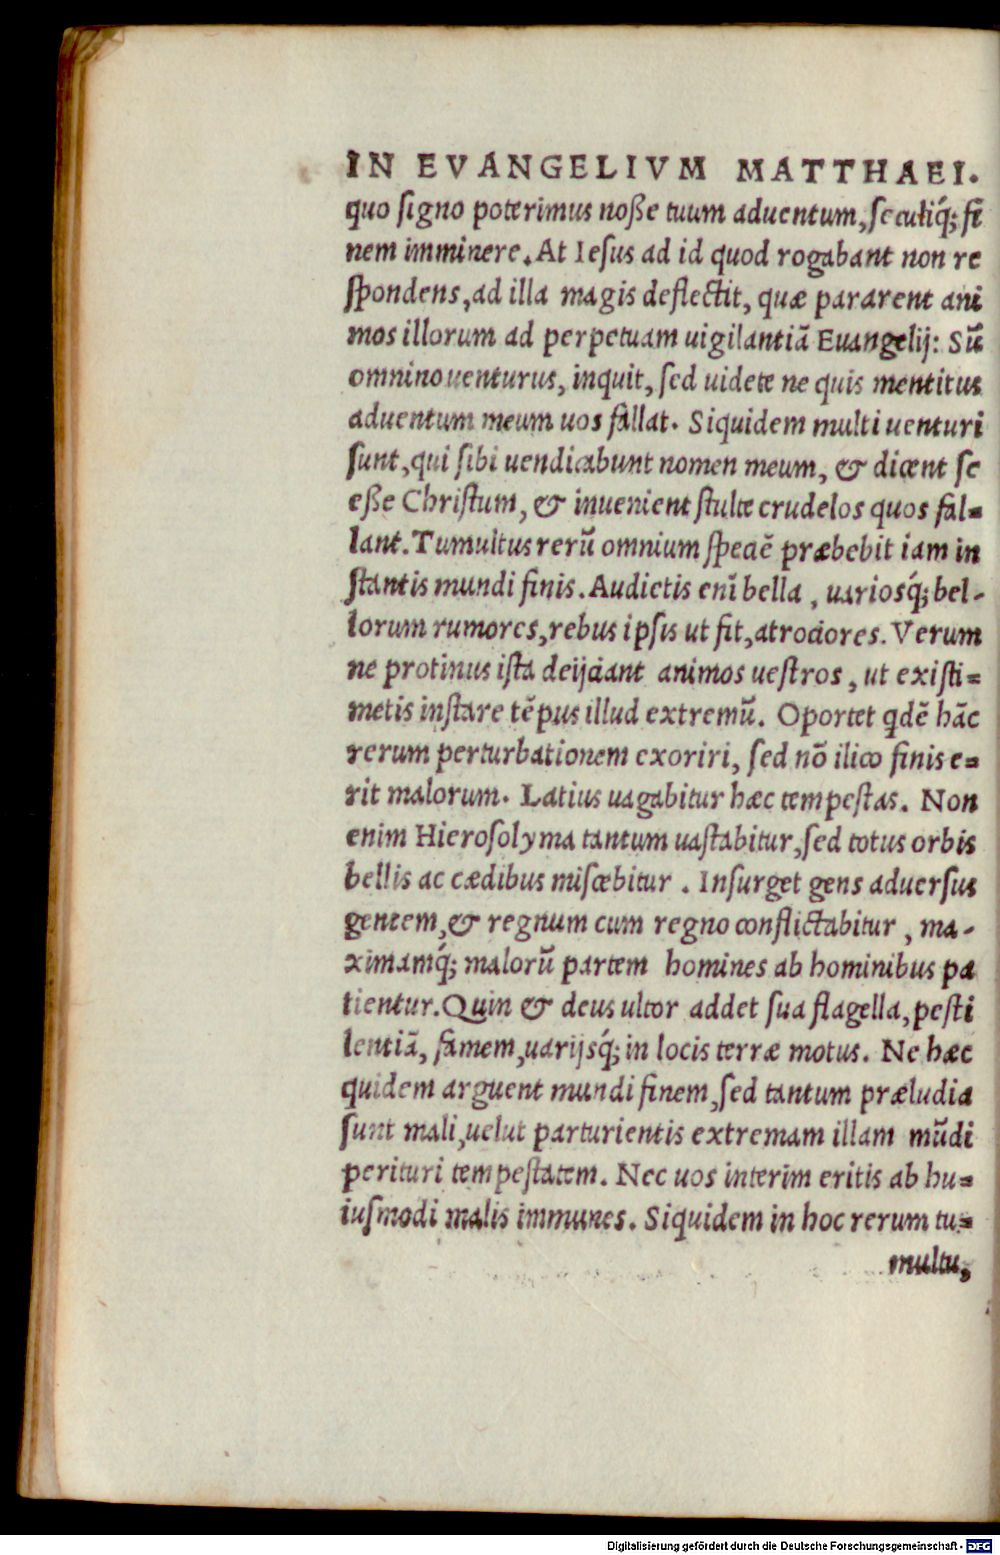 IN EVANGELIVM MATTHAEI.
quo ſigno poterimus noße tuum aduentum, ſeculiq́; fi
nem imminere. At Ieſus ad id quod rogabant non re
ſpondens, ad illa magis deflectit, quæ pararent ani
mos illorum ad perpetuam uigilantiā Euangelij: Sū
omnino uenturus, inquit, ſed uidete ne quis mentitus
aduentum meum uos fallat. Siquidem multi uenturi
ſunt, qui ſibi uendicabunt nomen meum, & dicent ſe
eße Chriſtum, & inuenient ſtulte crudelos quos fal=
lant. Tumultus rerū omnium ſpeciē præbebit iam in
ſtantis mundi finis. Audietis enī bella, uarioſq́; bel-
lorum rumores, rebus ipſis ut fit, atrociores. Verum
ne protinus iſta deijciant animos ueſtros, ut exiſti=
metis inſtare tēpus illud extremū. Oportet qdē hāc
rerum perturbationem exoriri, ſed nō ilico finis e=
rit malorum. Latius uagabitur hæc tempeſtas. Non
enim Hieroſolyma tantum uaſtabitur, ſed totus orbis
bellis ac cædibus miſcebitur. Inſurget gens aduerſus
gentem, & regnum cum regno conflictabitur, ma-
ximamq́; malorū partem homines ab hominibus pa
tientur. Quin & deus ultor addet ſua flagella, peſti
lentiā, famem, uarijsq́; in locis terræ motus. Ne hæc
quidem arguent mundi finem, ſed tantum præludia
ſunt mali, uelut parturientis extremam illam mūdi
perituri tempeſtatem. Nec uos interim eritis ab hu=
iuſmodi malis immunes. Siquidem in hoc rerum tu=
multu,
Digitalisierung gefördert durch die Deutsche Forschungsgemeinschaft - DFG